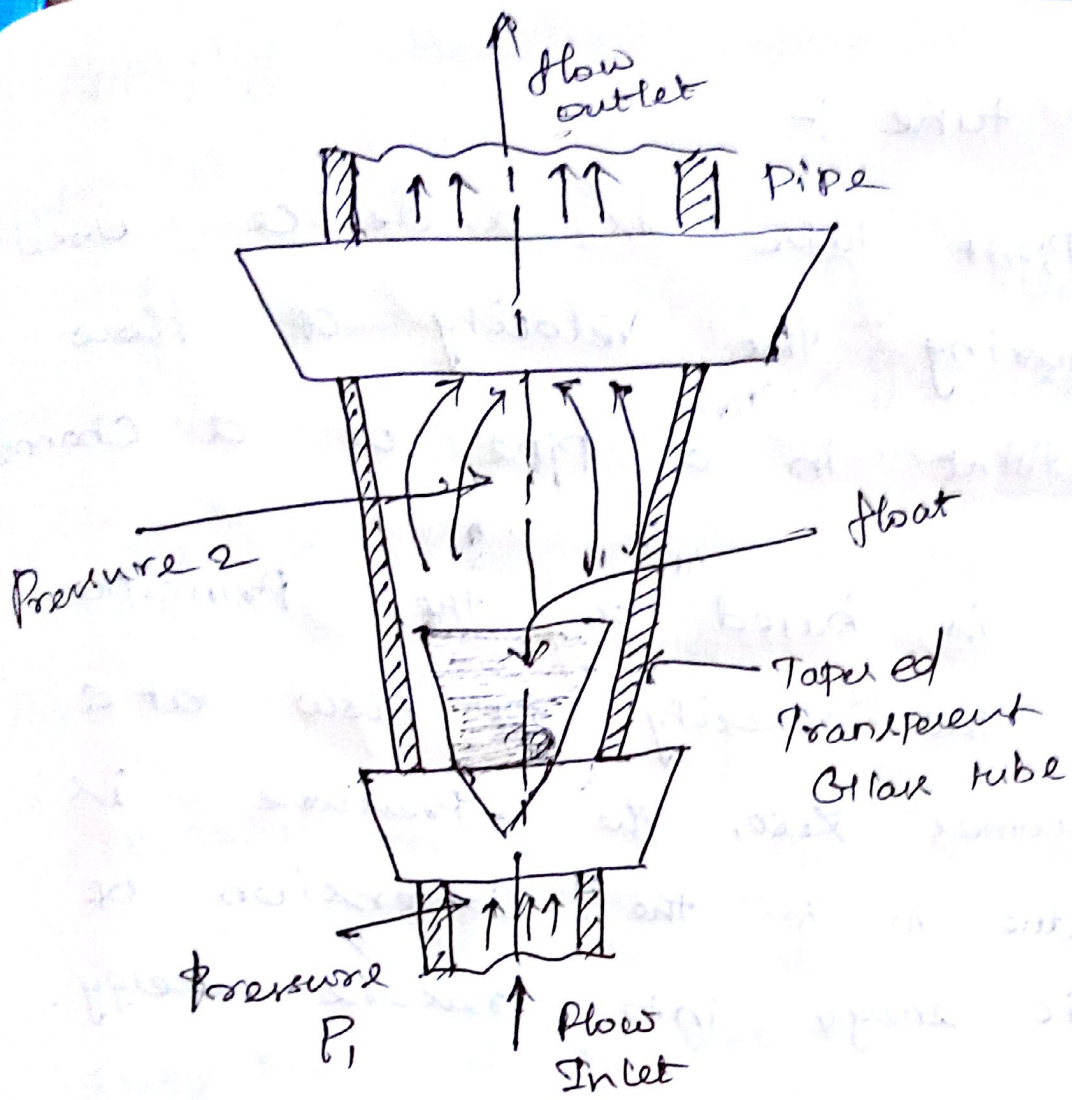 flow
outlet
Pipe
Pressure 2
float
Tapered
Transparent
Glass tube
Pressure
P1
Flow
Inlet